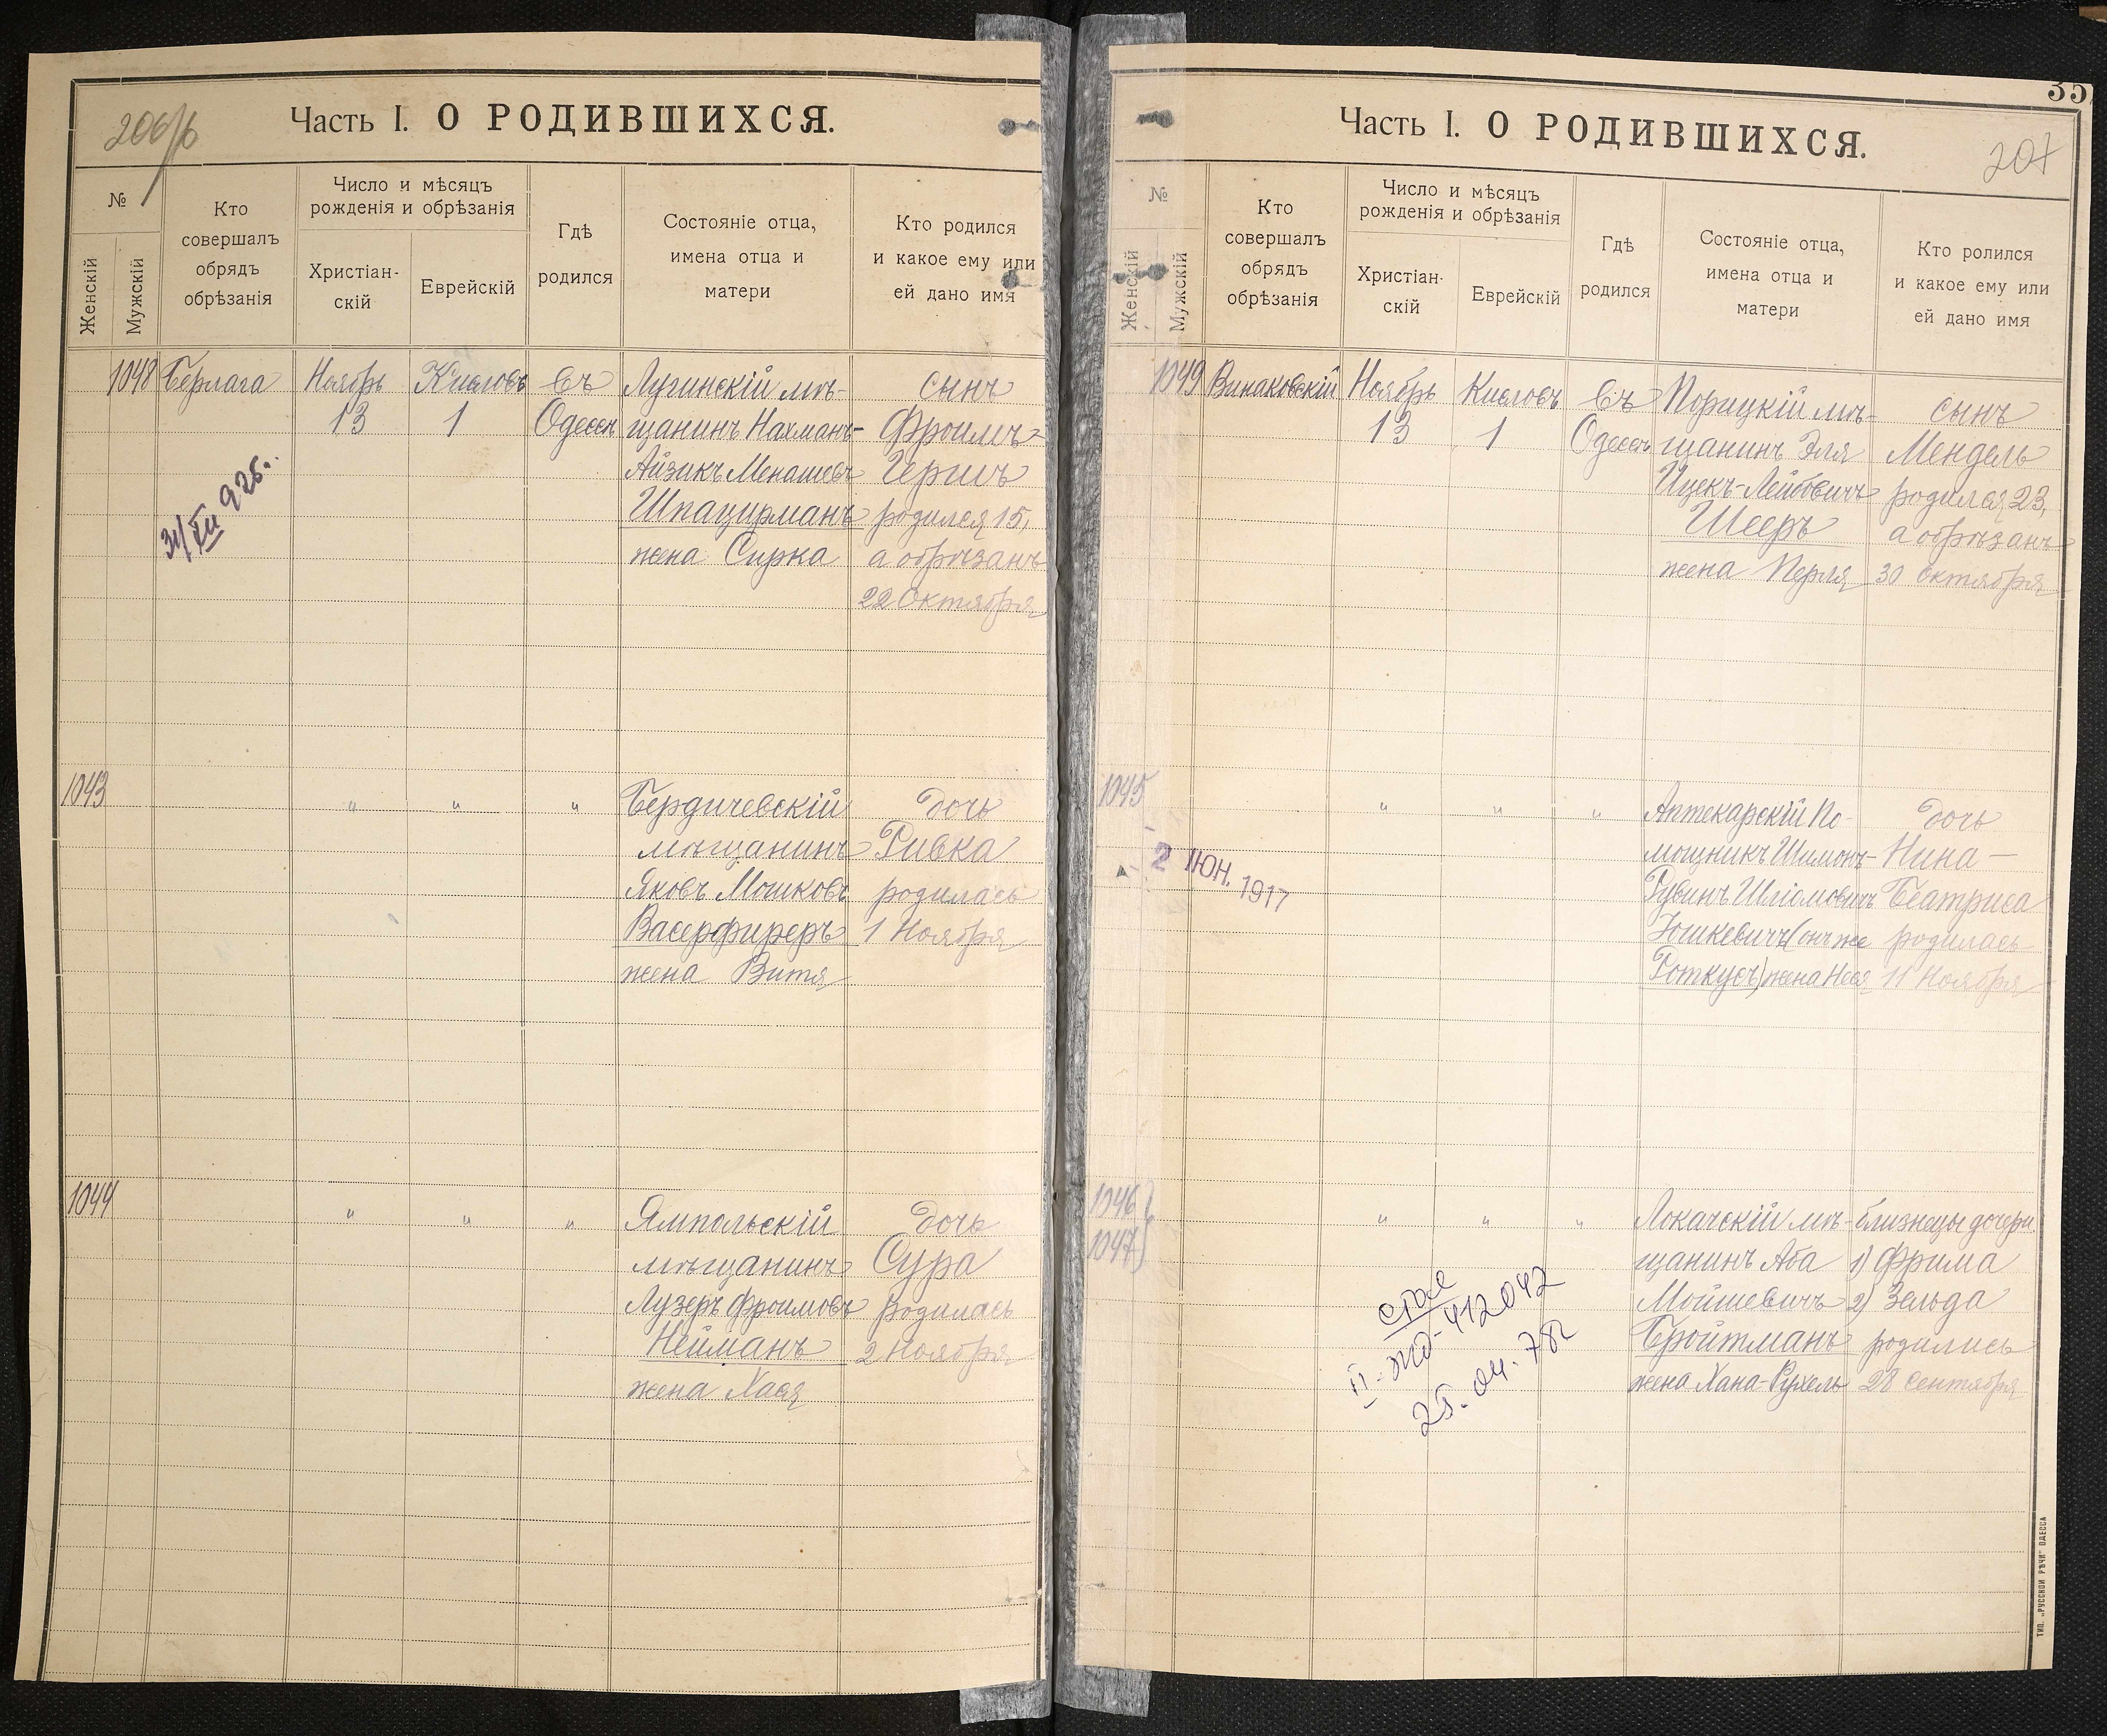 206/б
Часть I. О РОДИВШИХСЯ.
№
Женскій
Мужскій
Кто
совершалъ
обрядъ
обрѣзанія
Число и мѣсяцъ
рожденія и обрѣзанія
Христіан-
скій
Еврейскій
Гдѣ
родился
Состояніе отца,
имена отца и
матери
Кто родился
и какое ему или
ей дано имя
1048 Берлага Ноябрь Кислевъ въ Лугинскій мѣ- сынъ
13 1 Одессѣ щанинъ Нахманъ- Фроимъ-
Айзикъ Менашевъ Гершъ
Шпацирманъ родился 15,
жена Сирка а обрѣзанъ
22 Октября
31/XII 925.
1043 " " " Бердичевскій дочь
мѣщанинъ Ривка
Яковъ Мошковъ родилась
Васерфиреръ 1 Ноября
жена Витя
1044 " " " Ямпольскій дочь
мѣщанинъ Сура
Лузеръ Фроимовъ родилась
Нейманъ 2 Ноября
жена Хася
35
207
Часть I. О РОДИВШИХСЯ.
№
Женскій
Мужскій
Кто
совершалъ
обрядъ
обрѣзанія
Число и мѣсяцъ
рожденія и обрѣзанія
Христіан-
скій
Еврейскій
Гдѣ
родился
Состояніе отца,
имена отца и
матери
Кто ролился
и какое ему или
ей дано имя
1049 Винаковскій Ноябрь Кислевъ въ Порицкій мѣ- сынъ
13 1 Одессѣ щанинъ Эля Мендель
Ицекъ-Лейбовичъ родился 23,
Шееръ а обрѣзанъ
жена Перля 30 октября
1045 " " " Аптекарскій По- дочь
мощникъ Шимонъ- Нина-
Рувинъ Шліомовичъ Беатриса
Юшкевичъ (онъ же родилась
Роткусъ) жена Неся 11 Ноября
2 ІЮН. 1917
1046 " " " Локачскій мѣ- близнецы дочери
1047 щанинъ Аба 1) Фрима
Мойшевичъ 2) Зельда
Бройтманъ родились
жена Хана-Рухель 28 сентября
II-ЖД-412042
25.04.78г
ТИП. „РУССКОЙ РѢЧИ" ОДЕССА